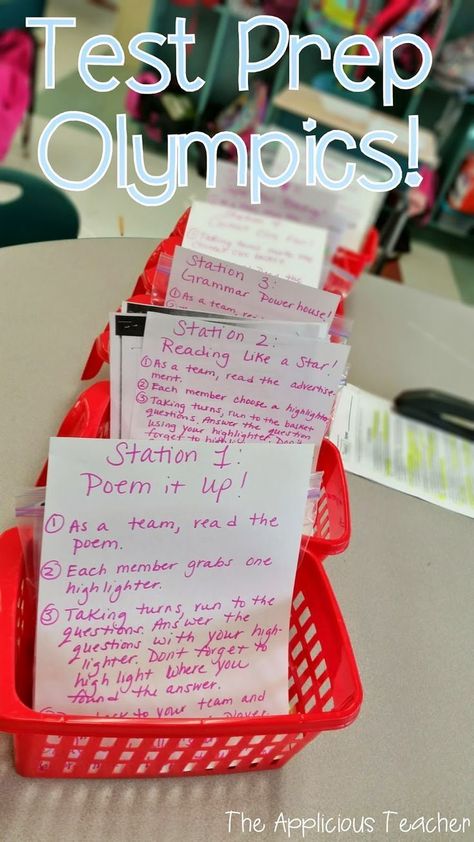 Test Prep
Olympics!
Station 3:
Grammar Powerhouse!
① As a team, read the
Station 2:
Reading Like a Star!
① As a team, read the advertise-
ment.
② Each member choose a highlighter
③ Taking turns, run to the basket
questions. Answer the question
using your highlighter. Don't
forget to highl
Station 1:
Poem it up!
① As a team, read the
poem.
② Each member grabs one
highlighter.
③ Taking turns, run to the
questions. Answer the
questions with your high-
lighter. Dont forget to
highlight where you
found the answer.
back to your team and
The Applicious Teacher